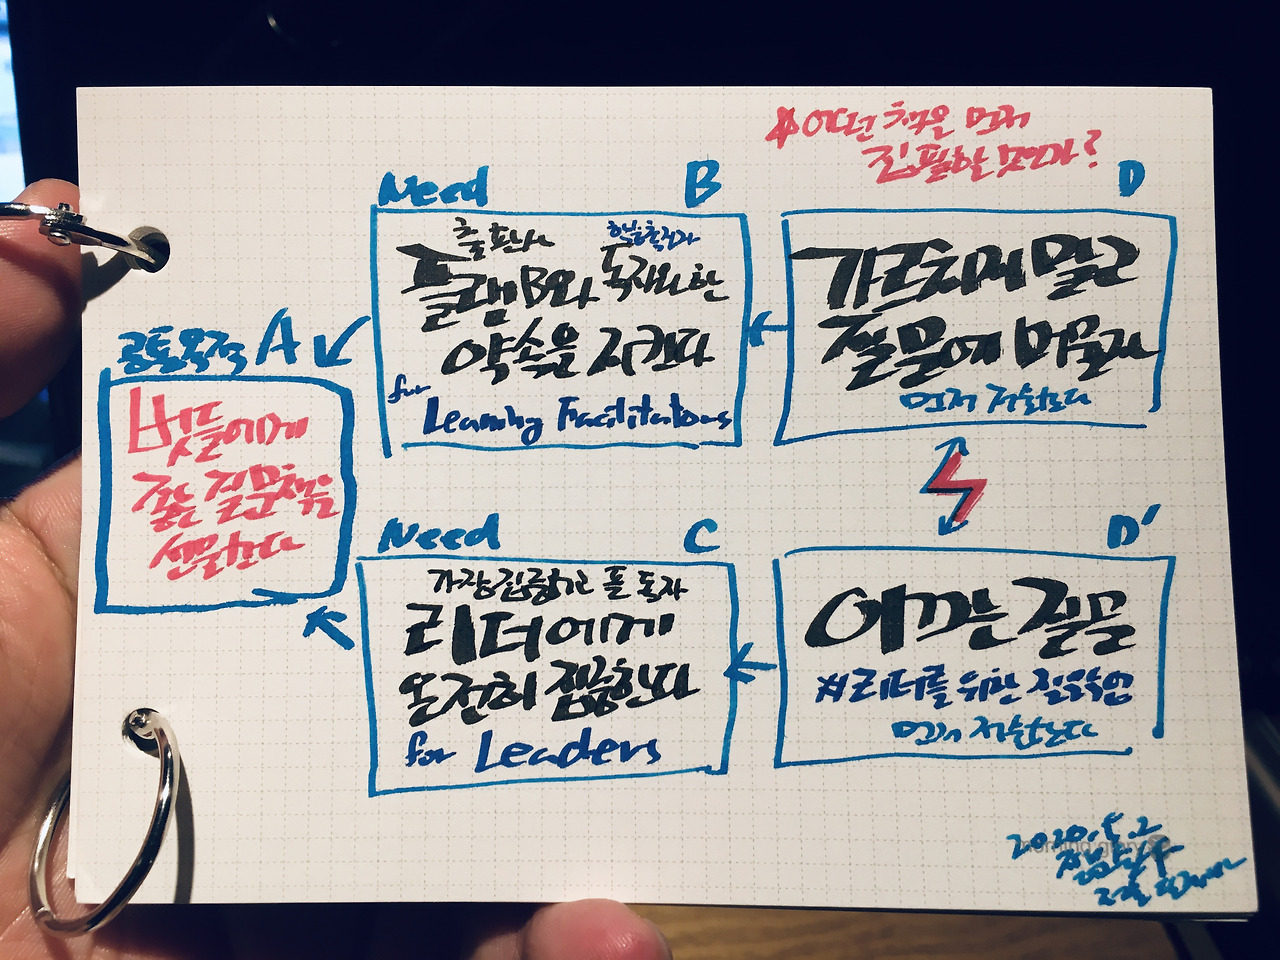 어떤 책을 먼저
집필할 것인가?
Need B
출판사 학습촉진자
플랜B와 독자와 한
약속을 지킨다
for
Learning Facilitators
D
가르치지 말고
질문에 머물자
먼저 저술한다
공통목적 A
벗들에게
좋은 질문책을
선물한다
Need C
가장 집중하고 픈 독자
리더에게
온전히 집중한다
for Leaders
D'
아끼는 질문
#리더를 위한 질문수업
먼저 저술한다
2020.5.2